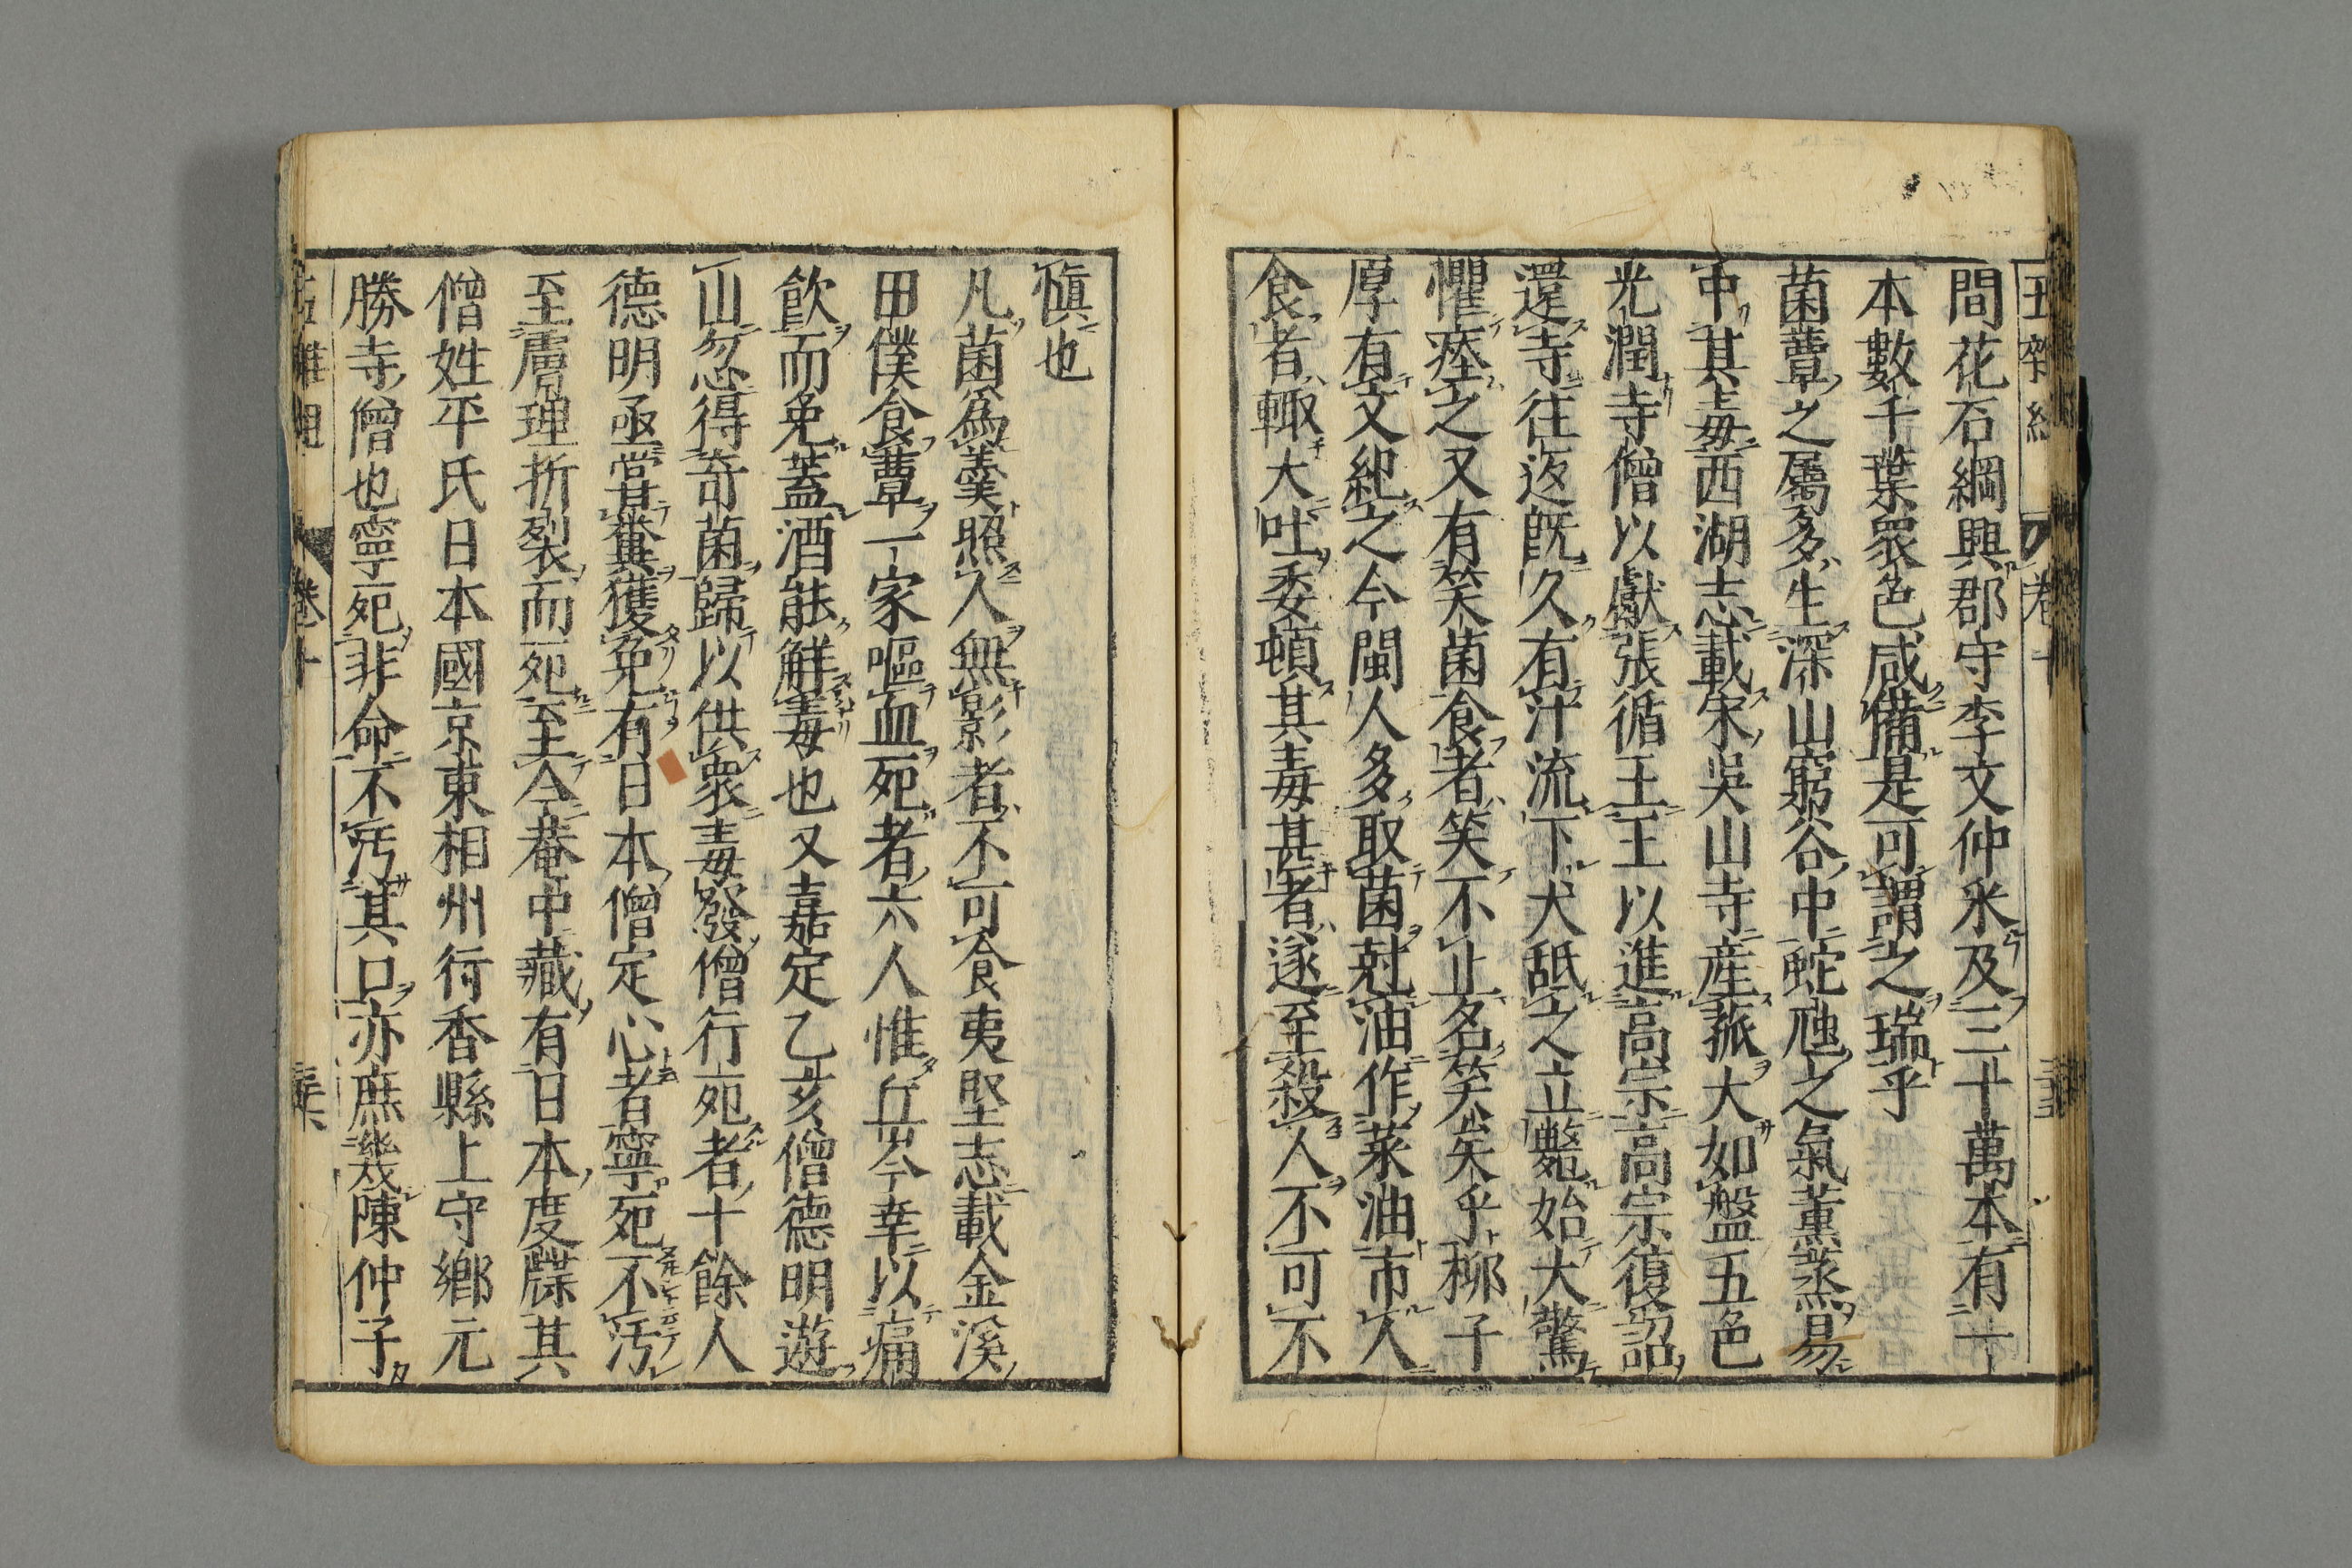 間花石綱興郡守李文仲采及三十萬本有一十
本數千葉衆色咸備是可謂之瑞乎
菌蕈之屬多生深山窮谷中蛇虺之氣薰蒸易
中其毒西湖志載宋吳山寺産菰大如盤五色
光潤寺僧以獻張循王王以進高宗高宗復詔
還寺往返既久有汁流下犬舐之立斃始大驚
懼瘞之又有笑菌食者笑不止名笑矣乎柳子
厚有文紀之今閩人多取菌尅油作菜油市人
食者輙大吐委頓其毒甚者遂至殺人不可不
愼也
凡菌爲羹照人無影者不可食夷堅志載金溪
田僕食蕈一家嘔血死者六人惟丘岑幸以痛
飲而免蓋酒能解毒也又嘉定乙亥僧德明遊
山忽得奇菌歸以供衆毒發僧行死者十餘人
德明亟嘗糞獲免有日本僧定心者寧死不汚
至膚理折裂而死至今菴中藏有日本度牒其
僧姓平氏日本國京東相州行香縣上守鄉元
勝寺僧也寧死非命不汚其口亦庶幾陳仲子
卷十